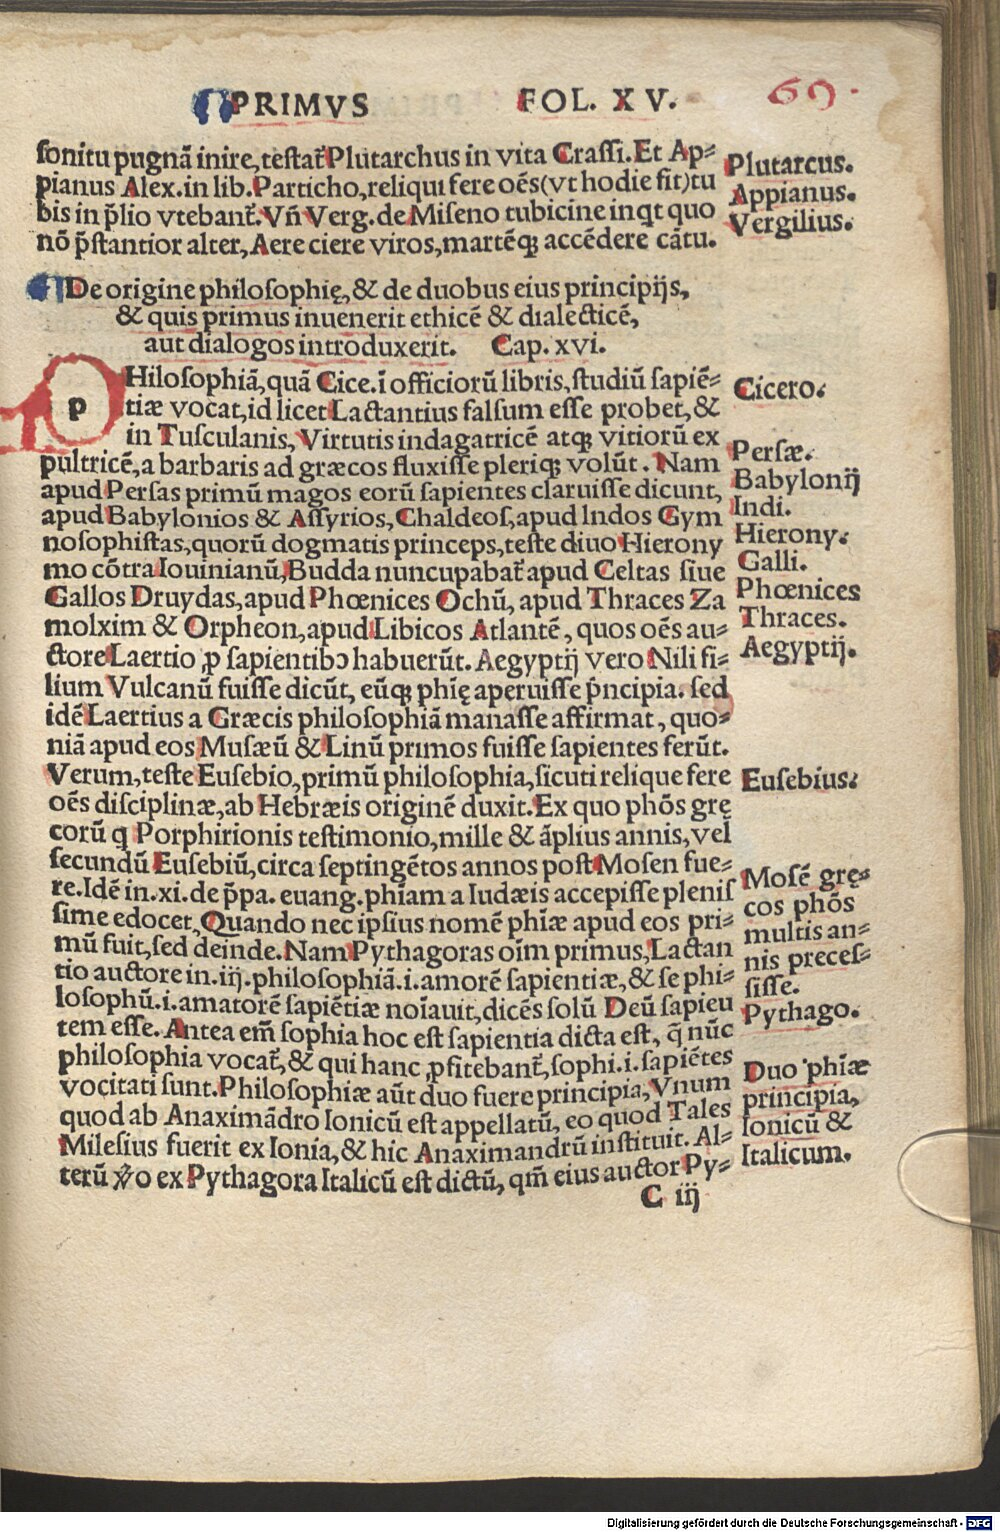 PRIMVS FOL. XV. 69.
sonitu pugnā inire, testat᷑ Plutarchus in vita Crassi. Et Ap⸗
pianus Alex. in lib. Particho, reliqui fere oēs (vt hodie fit) tu
bis in p̄lio vtebant᷑. Vn̄ Verg. de Miseno tubicine inqt quo
nō p̄stantior alter, Aere ciere viros, martēq; accēdere cātu.
Plutarcus.
Appianus.
Vergilius.
De origine philosophię, & de duobus eius principijs,
& quis primus inuenerit ethicē & dialecticē,
aut dialogos introduxerit. Cap. xvi.
pHilosophiā, quā Cice. ī officiorū libris, studiū sapiē⸗
tiæ vocat, id licet Lactantius falsum esse probet, &
in Tusculanis, Virtutis indagatricē atq; vitiorū ex
pultricē, a barbaris ad græcos fluxisse pleriq; volūt. Nam
apud Persas primū magos eorū sapientes claruisse dicunt,
apud Babylonios & Assyrios, Chaldeos, apud Indos Gym
nosophistas, quorū dogmatis princeps, teste diuo Hierony
mo cōtra Iouinianū, Budda nuncupabat᷑ apud Celtas siue
Gallos Druydas, apud Phœnices Ochū, apud Thraces Za
molxim & Orpheon, apud Libicos Atlantē, quos oēs au⸗
ctore Laertio ꝓ sapientibꝰ habuerūt. Aegyptij vero Nili fi⸗
lium Vulcanū fuisse dicūt, eūq; phię aperuisse p̄ncipia. sed
idē Laertius a Græcis philosophiā manasse affirmat, quo⸗
niā apud eos Musæū & Linū primos fuisse sapientes ferūt.
Verum, teste Eusebio, primū philosophia, sicuti relique fere
oēs disciplinæ, ab Hebræis originē duxit. Ex quo phōs grę
corū q Porphirionis testimonio, mille & āplius annis, vel
secundū Eusebiū, circa septingētos annos post Mosen fue⸗
re. Idē in. xi. de p̄pa. euang. phiam a Iudæis accepisse plenis
sime edocet, Quando nec ipsius nomē phiæ apud eos pri⸗
mū fuit, sed deinde. Nam Pythagoras oīm primus, Lactan
tio auctore in. iij. philosophiā .i. amorē sapientiæ, & se phi⸗
losophū .i. amatorē sapiētiæ noīauit, dicēs solū Deū sapieu
tem esse. Antea em̄ sophia hoc est sapientia dicta est, q̄ nūc
philosophia vocat᷑, & qui hanc ꝓfitebant᷑, sophi .i. sapiētes
vocitati sunt. Philosophiæ aūt duo fuere principia, Vnum
quod ab Anaximādro Ionicū est appellatū, eo quod Tales
Milesius fuerit ex Ionia, & hic Anaximandrū instituit. Al⸗
terū ꝟo ex Pythagora Italicū est dictū, qm̄ eius auctor Py⸗
C iij
Cicero.
Persæ.
Babylonij
Indi.
Hierony.
Galli.
Phœnices
Thraces.
Aegyptij.
Eusebius.
Mosē grę⸗
cos phōs
multis an⸗
nis preces⸗
sisse.
Pythago.
Duo phiæ
principia,
Ionicū &
Italicum.
Digitalisierung gefördert durch die Deutsche Forschungsgemeinschaft - DFG